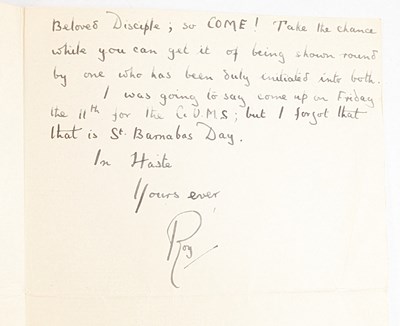 Beloved Disciple; so COME! Take the chance
while you can get it of being shown round
by one who has been duly initiated into both.
I was going to say, come up on Friday
the 11th for the C.U.M.S; but I forgot that
that is St. Barnabas Day.
In Haste
Yours ever
Roy